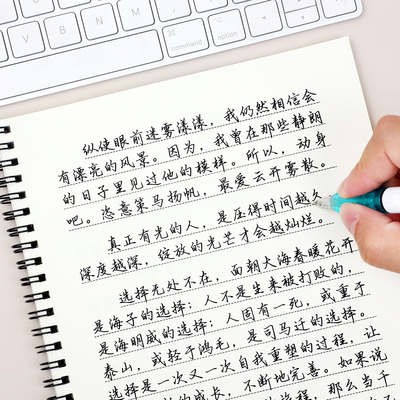 Z X C V B N M
⌘
command
⌥
option
纵使眼前迷雾漾漾，我仍然相信会
有漂亮的风景。因为，我曾在那些静朗
的日子里见过他的模样。所以，动身
吧。恣意策马扬帆，最爱云开雾散。
真正有光的人，是压得时间越久
深度越深，绽放的光芒才会越灿烂。
选择无处不在。面朝大海春暖花开
是海子的选择；人不是生来被打败的，
是海明威的选择；人固有一死，或重于
泰山，或轻于鸿毛，是司马迁的选择。
选择是一次又一次自我重塑的过程，让
的成长，不断地完善。如果说
旅程，那么当千